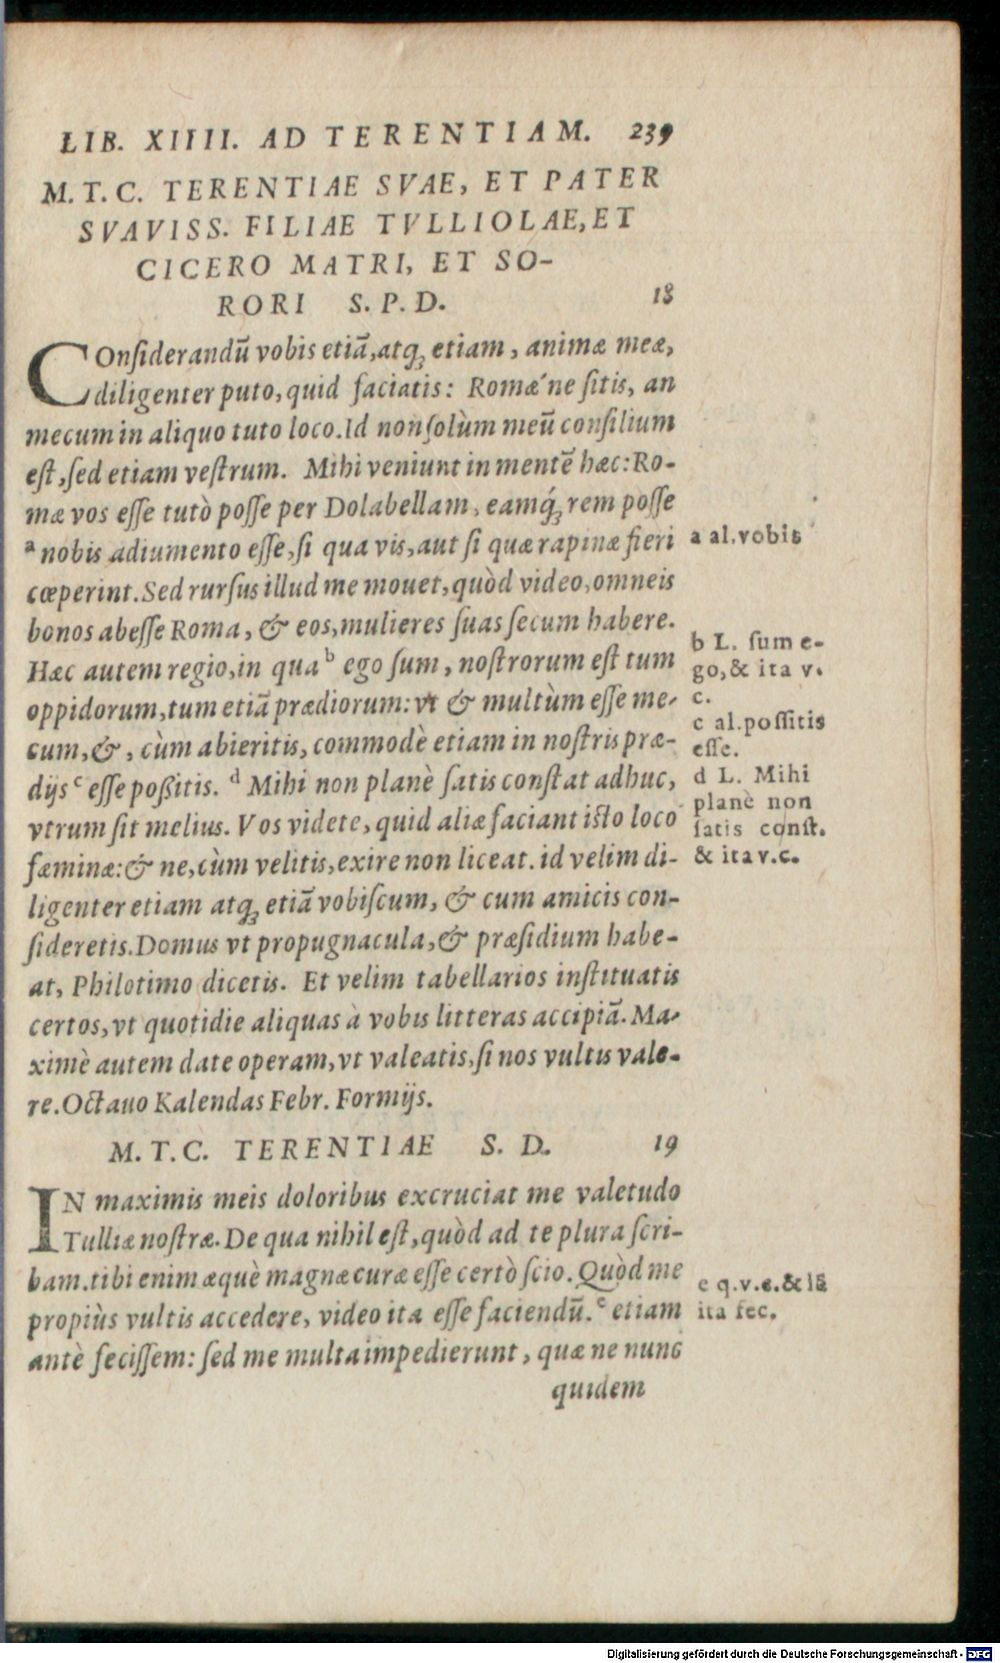 LIB. XIIII. AD TERENTIAM. 239
M. T. C. TERENTIAE SVAE, ET PATER
SVAVISS. FILIAE TVLLIOLAE, ET
CICERO MATRI, ET SO-
RORI S. P. D. 18
COnſiderandū vobis etiā, atq́ꝫ etiam, animæ meæ,
diligenter puto, quid faciatis: Romæ´ne ſitis, an
mecum in aliquo tuto loco. Id non ſolùm meū conſilium
eſt, ſed etiam veſtrum. Mihi veniunt in mentē hæc: Ro-
mæ vos eſſe tutò poſſe per Dolabellam, eamq́ꝫ rem poſſe
a nobis adiumento eſſe, ſi qua vis, aut ſi quæ rapinæ fieri
cœperint. Sed rurſus illud me mouet, quòd video, omneis
bonos abeſſe Roma, & eos, mulieres ſuas ſecum habere.
Hæc autem regio, in qua b ego ſum, noſtrorum eſt tum
oppidorum, tum etiā prædiorum: vt & multùm eſſe me-
cum, &, cùm abieritis, commodè etiam in noſtris præ-
dijs c eſſe poßitis. d Mihi non planè ſatis conſtat adhuc,
vtrum ſit melius. Vos videte, quid aliæ faciant iſto loco
fæminæ: & ne, cùm velitis, exire non liceat. id velim di-
ligenter etiam atqꝫ etiā vobiſcum, & cum amicis con-
ſideretis. Domus vt propugnacula, & præſidium habe-
at, Philotimo dicetis. Et velim tabellarios inſtituatis
certos, vt quotidie aliquas à vobis litteras accipiā. Ma-
ximè autem date operam, vt valeatis, ſi nos vultis vale-
re. Octauo Kalendas Febr. Formijs.
a al. vobis
b L. ſum e-
go, & ita v.
c.
c al. poſſitis
eſſe.
d L. Mihi
planè non
ſatis conſt.
& ita v.c.
M. T. C. TERENTIAE S. D. 19
IN maximis meis doloribus excruciat me valetudo
Tulliæ noſtræ. De qua nihil eſt, quòd ad te plura ſcri-
bam. tibi enim æquè magnæ curæ eſſe certò ſcio. Quòd me
propiùs vultis accedere, video ita eſſe faciendū. e etiam
antè feciſſem: ſed me multa impedierunt, quæ ne nunc
quidem
e q.v.e. & iā
ita fec.
Digitalisierung gefördert durch die Deutsche Forschungsgemeinschaft - DFG